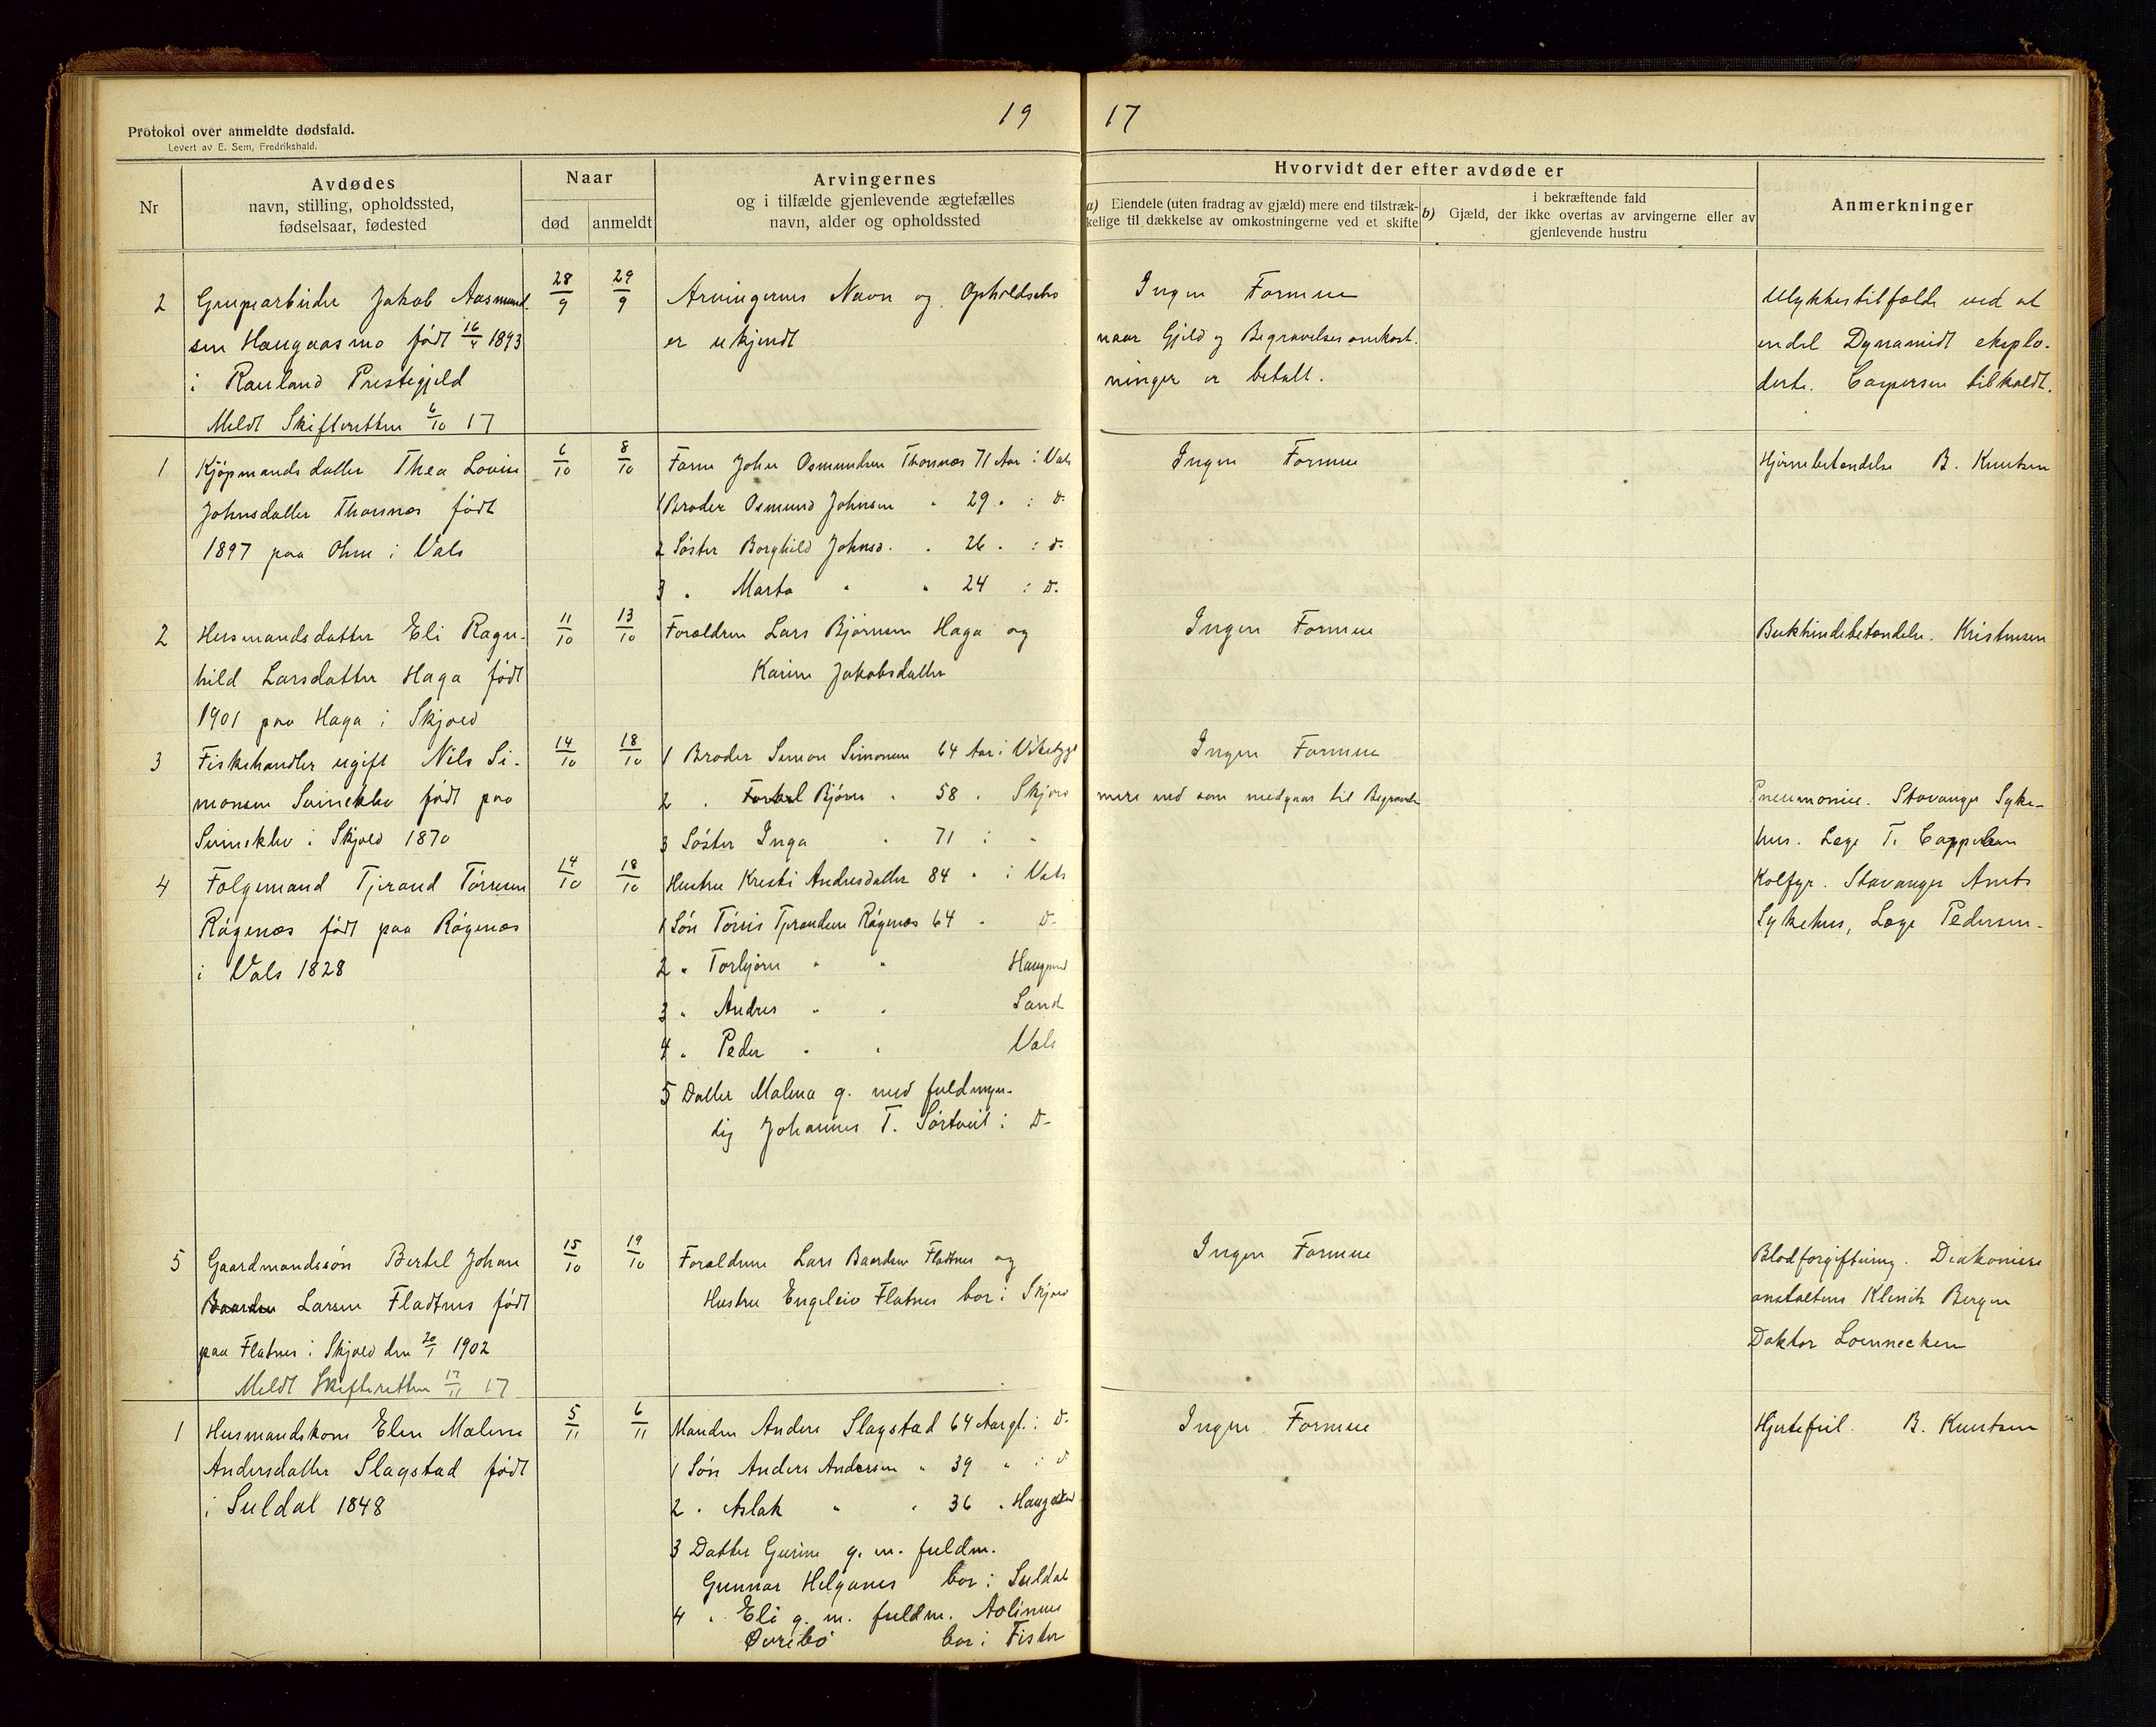 19 17
Protokol over anmeldte dødsfald.
Levert av E. Sem, Fredrikshald.
Nr
Avdødes
navn, stilling, opholdssted,
fødselsaar, fødested
Naar
død anmeldt
Arvingernes
og i tilfælde gjenlevende ægtefælles
navn, alder og opholdssted
Hvorvidt der efter avdøde er
a) Eiendele (uten fradrag av gjæld) mere end tilstræk-
kelige til dækkelse av omkostningerne ved et skifte
b) i bekræftende fald
Gjæld, der ikke overtas av arvingerne eller av
gjenlevende hustru
Anmerkninger
2 Grupearbeider Jakob Aasmund-
sen Haugaasmo født 16/4 1893
i Rauland Prestegjeld
Meldt Skifteretten 6/10 17
28/9 29/9
Arvingernes Navn og Opholdssted
er ukjendt
Ingen Formue
naar Gjeld og Begravelsesomkost-
ninger er betalt.
Ulykkestilfælde ved at
endel Dynamidt eksplo-
derte. Caspersen tilkaldt.
1 Kjøpmandsdatter Thea Lovise
Johnsdatter Thornæs født
1897 paa Ohm i Vats
6/10 8/10
Faren John Osmundsen Thornæs 71 Aar i Vats
1 Broder Osmund Johnsen " 29 " i d-
2 Søster Borghild Johnsd. " 26 " i d-
3 " Marta " " 24 i d-
Ingen Formue
Hjernebetændelse B. Knutsen
2 Husmandsdatter Eli Ragn-
hild Larsdatter Haga født
1901 paa Haga i Skjold
11/10 13/10
Forældrene Lars Bjørnsen Haga og
Karine Jakobsdatter
Ingen Formue
Bukhindebetændelse. Kristensen
3 Fiskehandler ugift Nils Si-
monsen Svineklev født paa
Svineklev i Skjold 1870
14/10 18/10
1 Broder Simon Simonsen 64 Aar i Vikebygd
2 " Bjørn " 58 " Skjold
3 Søster Inga " 71 i "
Ingen Formue
mere end som medgaar til Begravelse
Pneumonie. Stavanger Syke-
hus. Læge T. Cappelen
4 Følgemand Tjerand Tørresen
Røgenæs født paa Røgenæs
i Vats 1828
14/10 18/10
Hustru Kresti Andresdatter 84 " i Vats
1 Søn Tørris Tjerandsen Røgenæs 64 " d-
2 " Torbjørn " " Haugesund
3 " Andres " " Sand
4 " Peder " " Vats
5 Datter Malena g. med fuldmyn-
dig Johannes T. Sørtveit i d-
Kolfyr. Stavanger Amts
Sykehus, Læge Pedersen-
5 Gaardmandssøn Bertel Johan
Baardsen Larsen Fladtnes født
paa Flatnes i Skjold den 20/1 1902
Meldt Skifteretten 17/11 17
15/10 19/10
Forældrene Lars Baardsen Fladtnes og
Hustru Engeleiv Flatnes bor i Skjold
Ingen Formue
Blodforgiftning. Diakonisse
anstaltens Klinik Bergen
Doktor Loennecken
1 Husmandskone Elen Malene
Andersdatter Slagstad født
i Suldal 1848
5/11 6/11
Manden Anders Slagstad 64 Aar gl. i d-
1 Søn Anders Andersen " 39 " i d
2 " Aslak " " 36 " Haugesund
3 Datter Gurine g. m. fuldm.
Gunnar Helganes bor i Suldal
4 " Eli g. m. fuldm.
Øvrebø bor i Fister
Ingen Formue
Hjertefeil. B. Knutsen